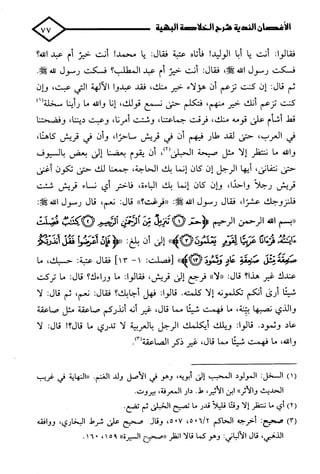 الأغصان الندية شرح الخلاصة البهية
٧٧
فقالوا: أنت يا أبا الوليد! فأتاه عتبة فقال: يا محمد! أنت خيرٌ أم عبد الله؟
فسكت رسول الله ﷺ. فقال: أنت خيرٌ أم عبد المطلب؟ فسكت رسول الله ﷺ.
ثم قال: إن كنت تزعم أن هؤلاء خير منك، فقد عبدوا الآلهة التي عبت، وإن
كنت تزعم أنك خير منهم، فتكلم حتى نسمع قولك، إنا والله ما رأينا سخلة(١)
قط أشأم على قومه منك، فرقت جماعتنا، وشتت أمرنا، وعبت ديننا، وفضحتنا
في العرب، حتى لقد طار فيهم أن في قريش ساحرًا، وأن في قريش كاهنًا،
والله ما ننتظر إلا مثل صيحة الحبلى(٢)، أن يقوم بعضنا إلى بعض بالسيوف
حتى نتفانى، أيها الرجل إن كان إنما بك الحاجة، جمعنا لك حتى تكون أغنى
قريش رجلًا واحدًا، وإن كان إنما بك الباءة، فاختر أي نساء قريش شئت
فلنزوجك عشرًا، فقال رسول الله ﷺ: «فرغت؟» قال: نعم، قال رسول الله ﷺ:
«بسم الله الرحمن الرحيم ﴿حم ۝١ تَنزِيلٌ مِّنَ الرَّحْمَنِ الرَّحِيمِ ۝٢ كِتَابٌ فُصِّلَتْ
آيَاتُهُ قُرْآنًا عَرَبِيًّا لِّقَوْمٍ يَعْلَمُونَ ۝٣﴾ إلى أن بلغ: ﴿فَإِنْ أَعْرَضُوا فَقُلْ أَنذَرْتُكُمْ
صَاعِقَةً مِّثْلَ صَاعِقَةِ عَادٍ وَثَمُودَ ۝١٣﴾» [فصلت: ١- ١٣] فقال عتبة: حسبك، ما
عندك غير هذا؟ قال: «لا» فرجع إلى قريش، فقالوا: ما وراءك؟ قال: ما تركت
شيئًا أرى أنكم تكلمونه إلا كلمته. قالوا: فهل أجابك؟ فقال: نعم، ثم قال: لا
والذي نصبها بيّنة، ما فهمت شيئًا مما قال، غير أنه أنذركم صاعقة مثل صاعقة
عاد وثمود. قالوا: ويلك أيكلمك الرجل بالعربية لا تدري ما قال؟! قال: لا
والله، ما فهمت شيئًا مما قال، غير ذكر الصاعقة(٣).
(١) السخل: المولود المحبب إلى أبويه، وهو في الأصل ولد الغنم. «النهاية في غريب
الحديث والأثر» ابن الأثير، ط. دار المعرفة، بيروت.
(٢) أي ما ننتظر إلا وقتًا قليلًا قدر ما تصيح الحبلى ثم تضع.
(٣) صحيح: أخرجه الحاكم ٥٠٦/٢، ٥٠٧، وقال: صحيح على شرط البخاري، ووافقه
الذهبي، قال الألباني: وهو كما قالا انظر «صحيح السيرة» ١٥٩، ١٦٠.